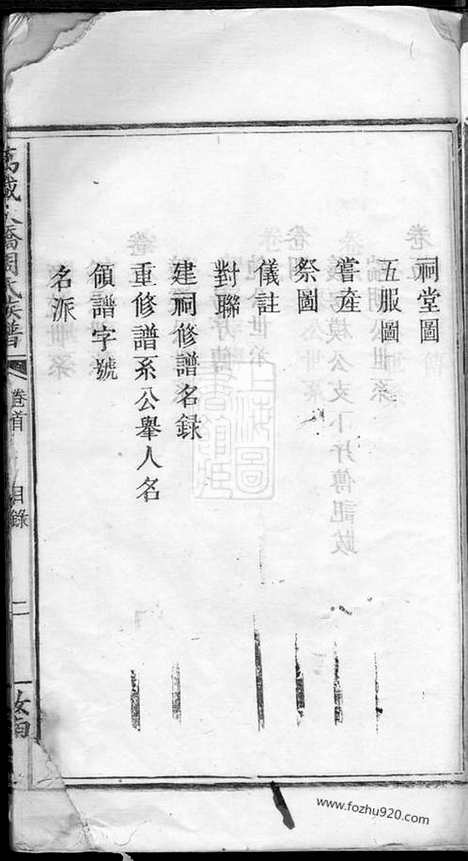 祠堂圖
五服圖
嘗産
祭圖
儀註
對聯
建祠修譜名錄
重修譜系公舉人名
領譜字號
名派
萬載 橋周氏族譜
卷首
目錄
二
汝南
www.fozhu920.com